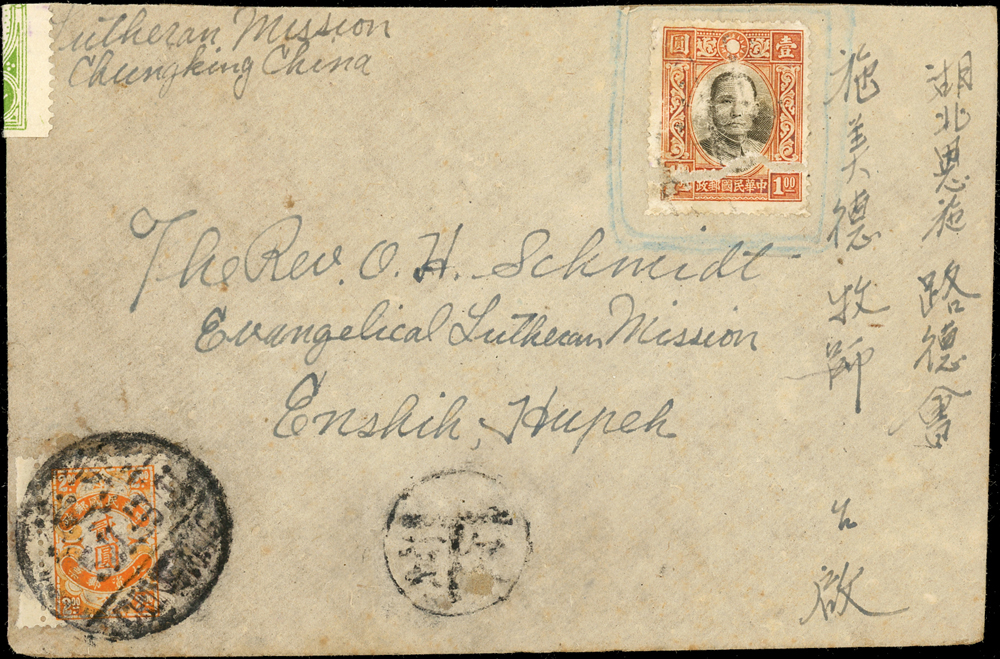 Lutheran Mission
Chungking China
圓 壹
政郵國民華中 1.00
The Rev. O. H. Schmidt
Evangelical Lutheran Mission
Enshih, Hupeh
湖北恩施 路德會
施美德牧師 台啟
貳圓